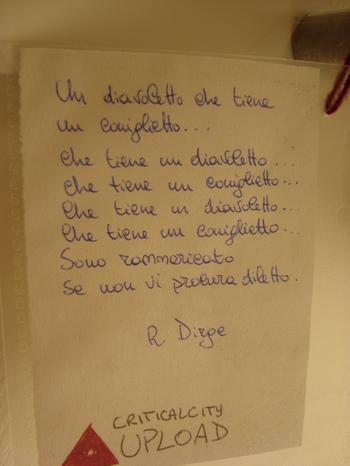 Un diavoletto che tiene
un coniglietto...
che tiene un diavoletto...
che tiene un coniglietto...
Che tiene un diavoletto...
Che tiene un coniglietto...
Sono rammaricato
Se non vi procura diletto.
R. Dirge
CRITICALCITY
UPLOAD